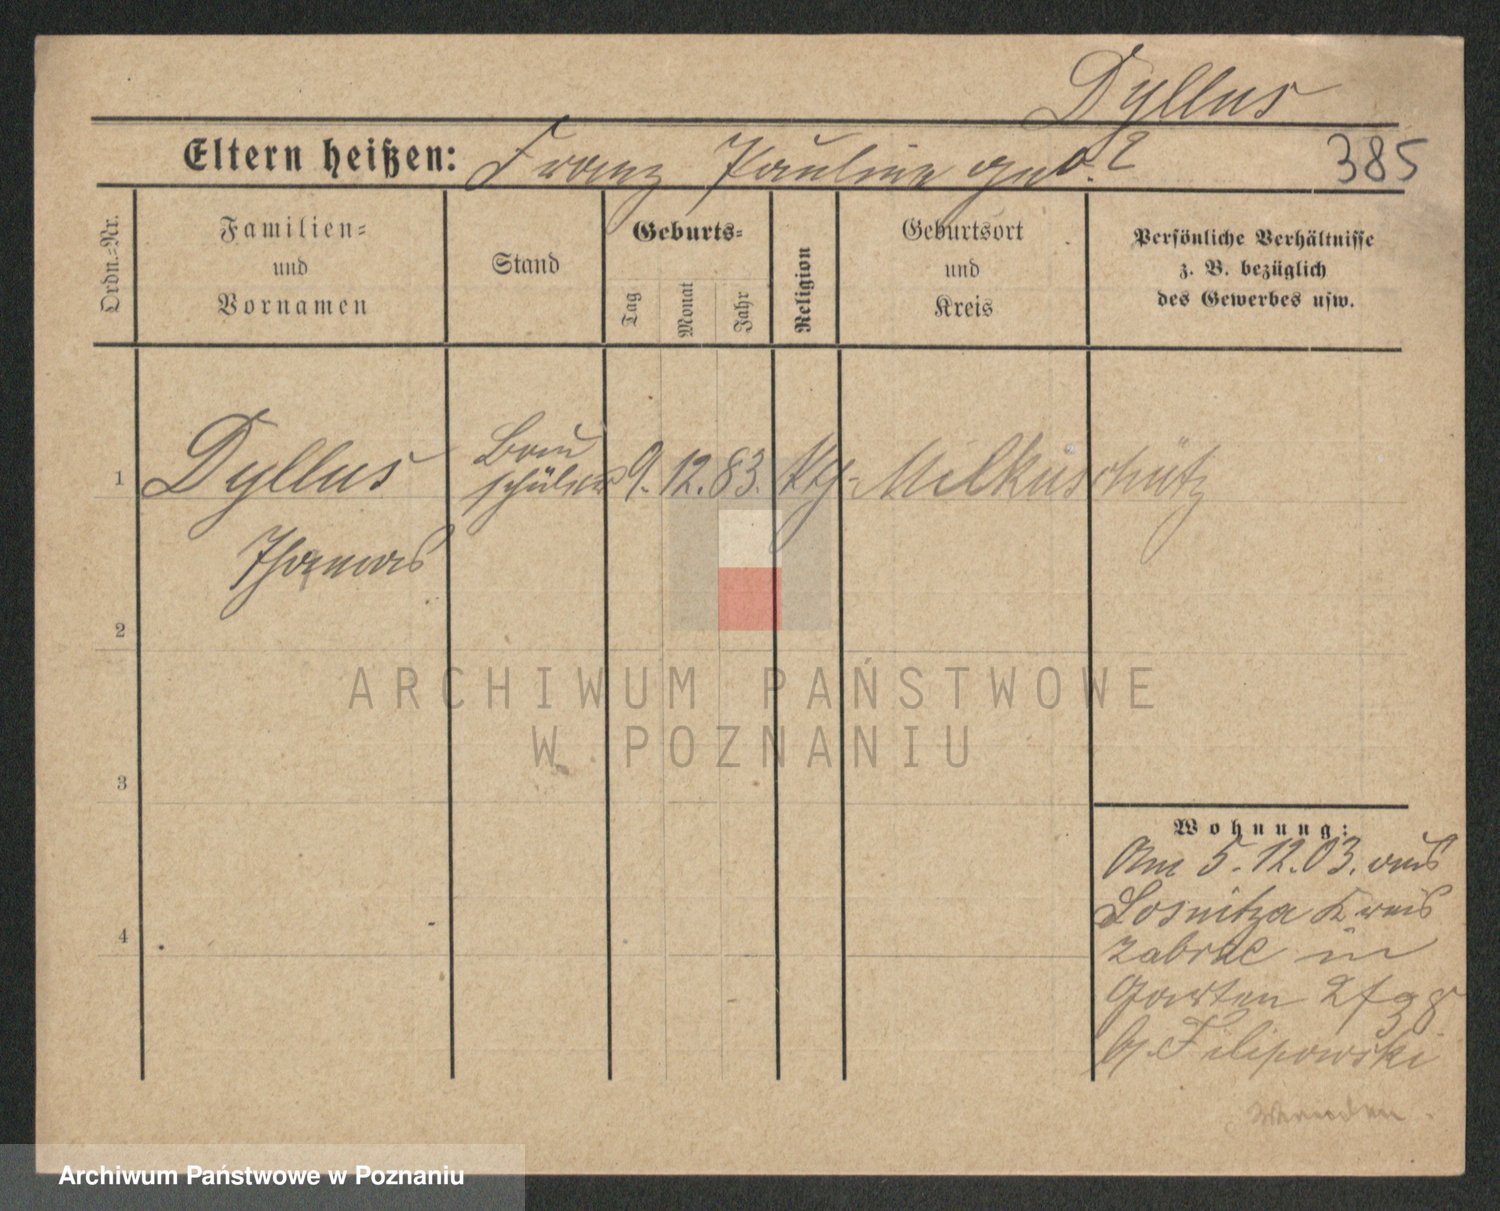 Dyllus
Eltern heißen: Franz Pauline geb. ?
385
Ordn.=Nr.
Familien=
und
Vornamen
Stand
Geburts=
Tag
Monat
Jahr
Religion
Geburtsort
und
Kreis
Persönliche Verhältnisse
z. B. bezüglich
des Gewerbes usw.
1
Dyllus
Thomas
Bau
schüler
9. 12. 83.
kth.
Mikultschütz
2
3
4
Wohnung:
Am 5.12.03. aus
Sosnitza Kreis
Zabrze in
Garten
b. Filipowski
ARCHIWUM PAŃSTWOWE
W POZNANIU
Archiwum Państwowe w Poznaniu